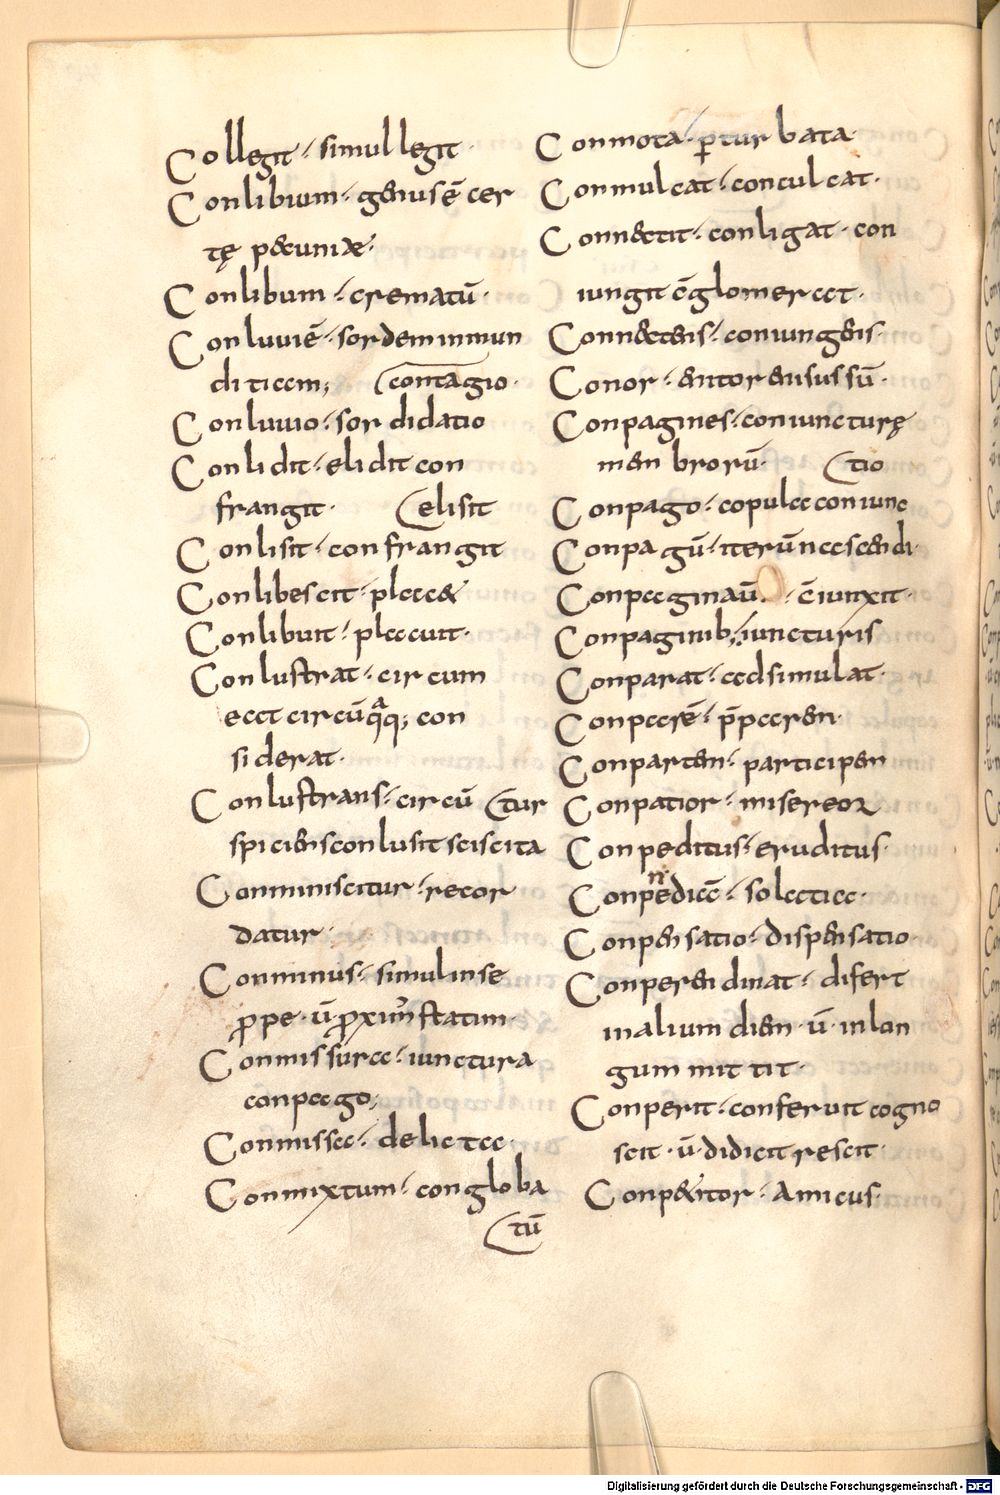 Collegit · simul legit ·
Conlibium · genus ē cer
tę pecuniæ ·
Conlibum · crematū ·
Conluuiē · sordem inmun
diticem; contagio ·
Conluuio · sordidatio
Conlidit · elidit con
frangit · elisit
Conlisit · confrangit
Conlibescit · placet
Conlibuit · placuit ·
Conlustrat · circum
eat circūq̄q; con
siderat ·
Conlustrans · circū tur
spiciens conlusit sciscita
Comminiscitur · recor
datur ·
Comminus · simul in se
prope · ū proxim statim ·
Conmissura · iunctura
cōnpago;
Conmissa · delicta ·
Conmixtum · congloba
tū
Conmota · ꝑturbata ·
Conmulcat · conculcat ·
Connectit · conligat · con
iungit c̄glomerat ·
Connectens · coniungens ·
Conor · enitor enisus sū ·
Conpagines · coniuncturę
menbrorū · tio
Conpago · copula coniunc
Conpagū · iterū nascendi ·
Conpaginaū · c̄iunxit ·
Conpaginib; iuncturis
Conparat · adsimulat ·
Conparē · p̄paren ·
Conparten · participen
Conpatior · misereor
Conpeditus · eruditus ·
Conpendiā · solactia ·
Conpensatio · dispensatio ·
Conperendinat · difert
in alium dien · ū · in lon
gum mittit ·
Conperit · conferuit cogno
scit · ū · didicit rescit ·
Conpetitor · Amicus ·
Digitalisierung gefördert durch die Deutsche Forschungsgemeinschaft - DFG